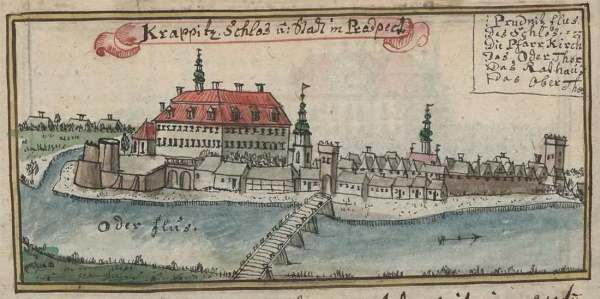 Krappitz Schlos u: Stadt in Prospect.
Prudnitz flus.
Des Schlos.
Die Pfarr Kirch
Das Oder Thor
Das Rathaus
Das Ober Thor
Oder flus.